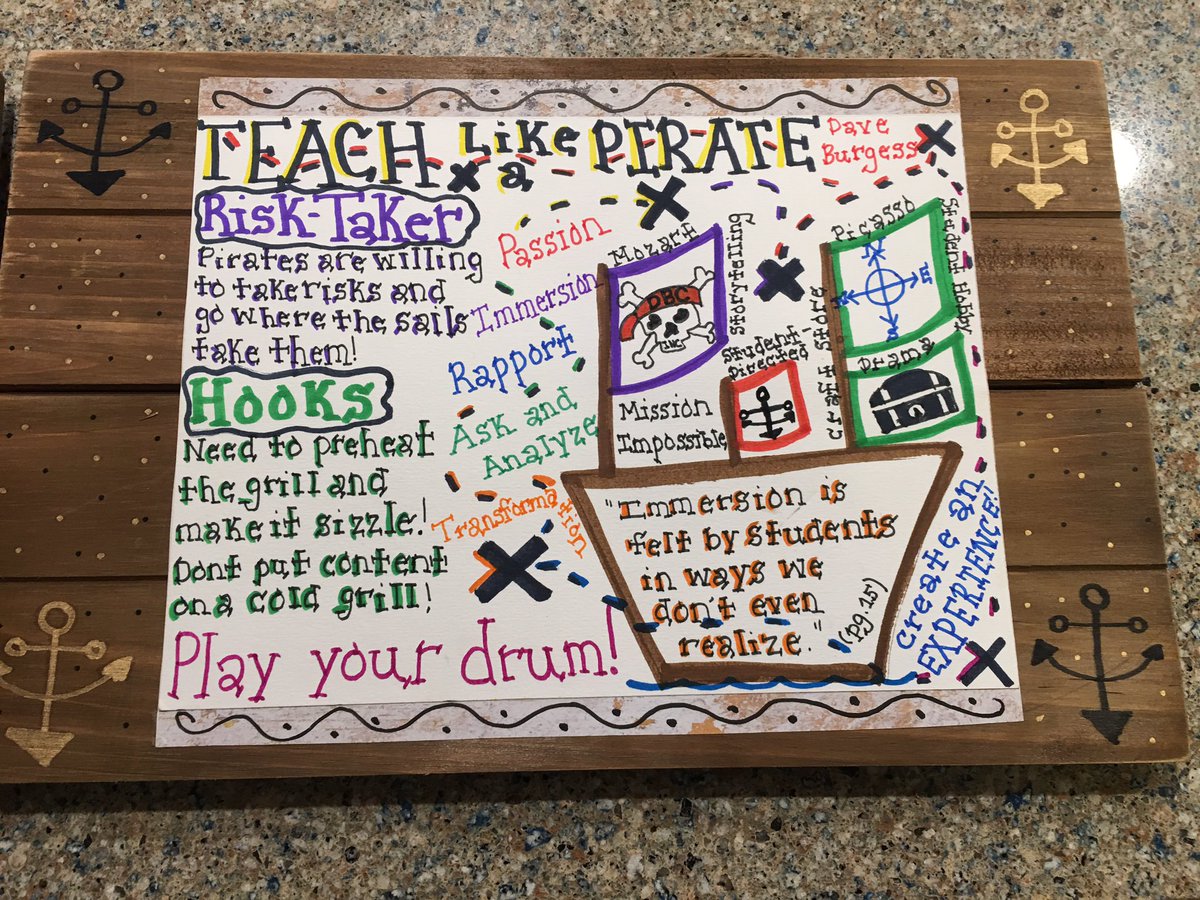 TEACH Like a PIRATE
Dave
Burgess
Risk-Taker
Pirates are willing
to take risks and
go where the sails
take them!
Hooks
Need to preheat
the grill and
make it sizzle!
Dont put content
on a cold grill!
Play your drum!
Passion
Immersion
Rapport
Ask and
Analyze
Transformation
Mozart
DBC
INC
Storytelling
Mission
Impossible
Student-
Directed
Craft Store
Picasso
Student Hobby
N
E
S
W
Drama
"Immersion is
felt by students
in ways we
don't even
realize."
(pg. 15)
Create an
EXPERIENCE!